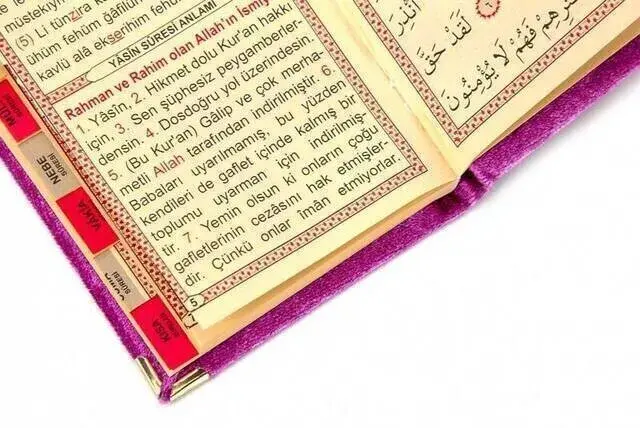 müstekıym
(5) Li tünzira
ühüm fehüm ğafilun
kavlü alâ ekserihim fehüm
YÂSİN SURESİ ANLAMI
Rahman ve Rahim olan Allah'ın İsmiy
1. Yâsîn, 2. Hikmet dolu Kur'an hakkı
için, 3. Sen şüphesiz peygamberler-
densin. 4. Dosdoğru yol üzerindesin.
5. (Bu Kur'an) Gâlip ve çok merha-
metli Allah tarafından indirilmiştir. 6.
Babaları uyarılmamış, bu yüzden
kendileri de gaflet içinde kalmış bir
toplumu uyarman için indirilmiş-
tir. 7. Yemin olsun ki onların çoğu
gafletlerinin cezâsını hak etmişler-
dir. Çünkü onlar îmân etmiyorlar.
5
لَقَدْ حَقَّ
فَهُمْ لَا يُؤْمِنُونَ
٦
MÜLK
SURESİ
NEBE
SURESİ
VAKIA
SURESİ
SURESİ
KISA
SURELER